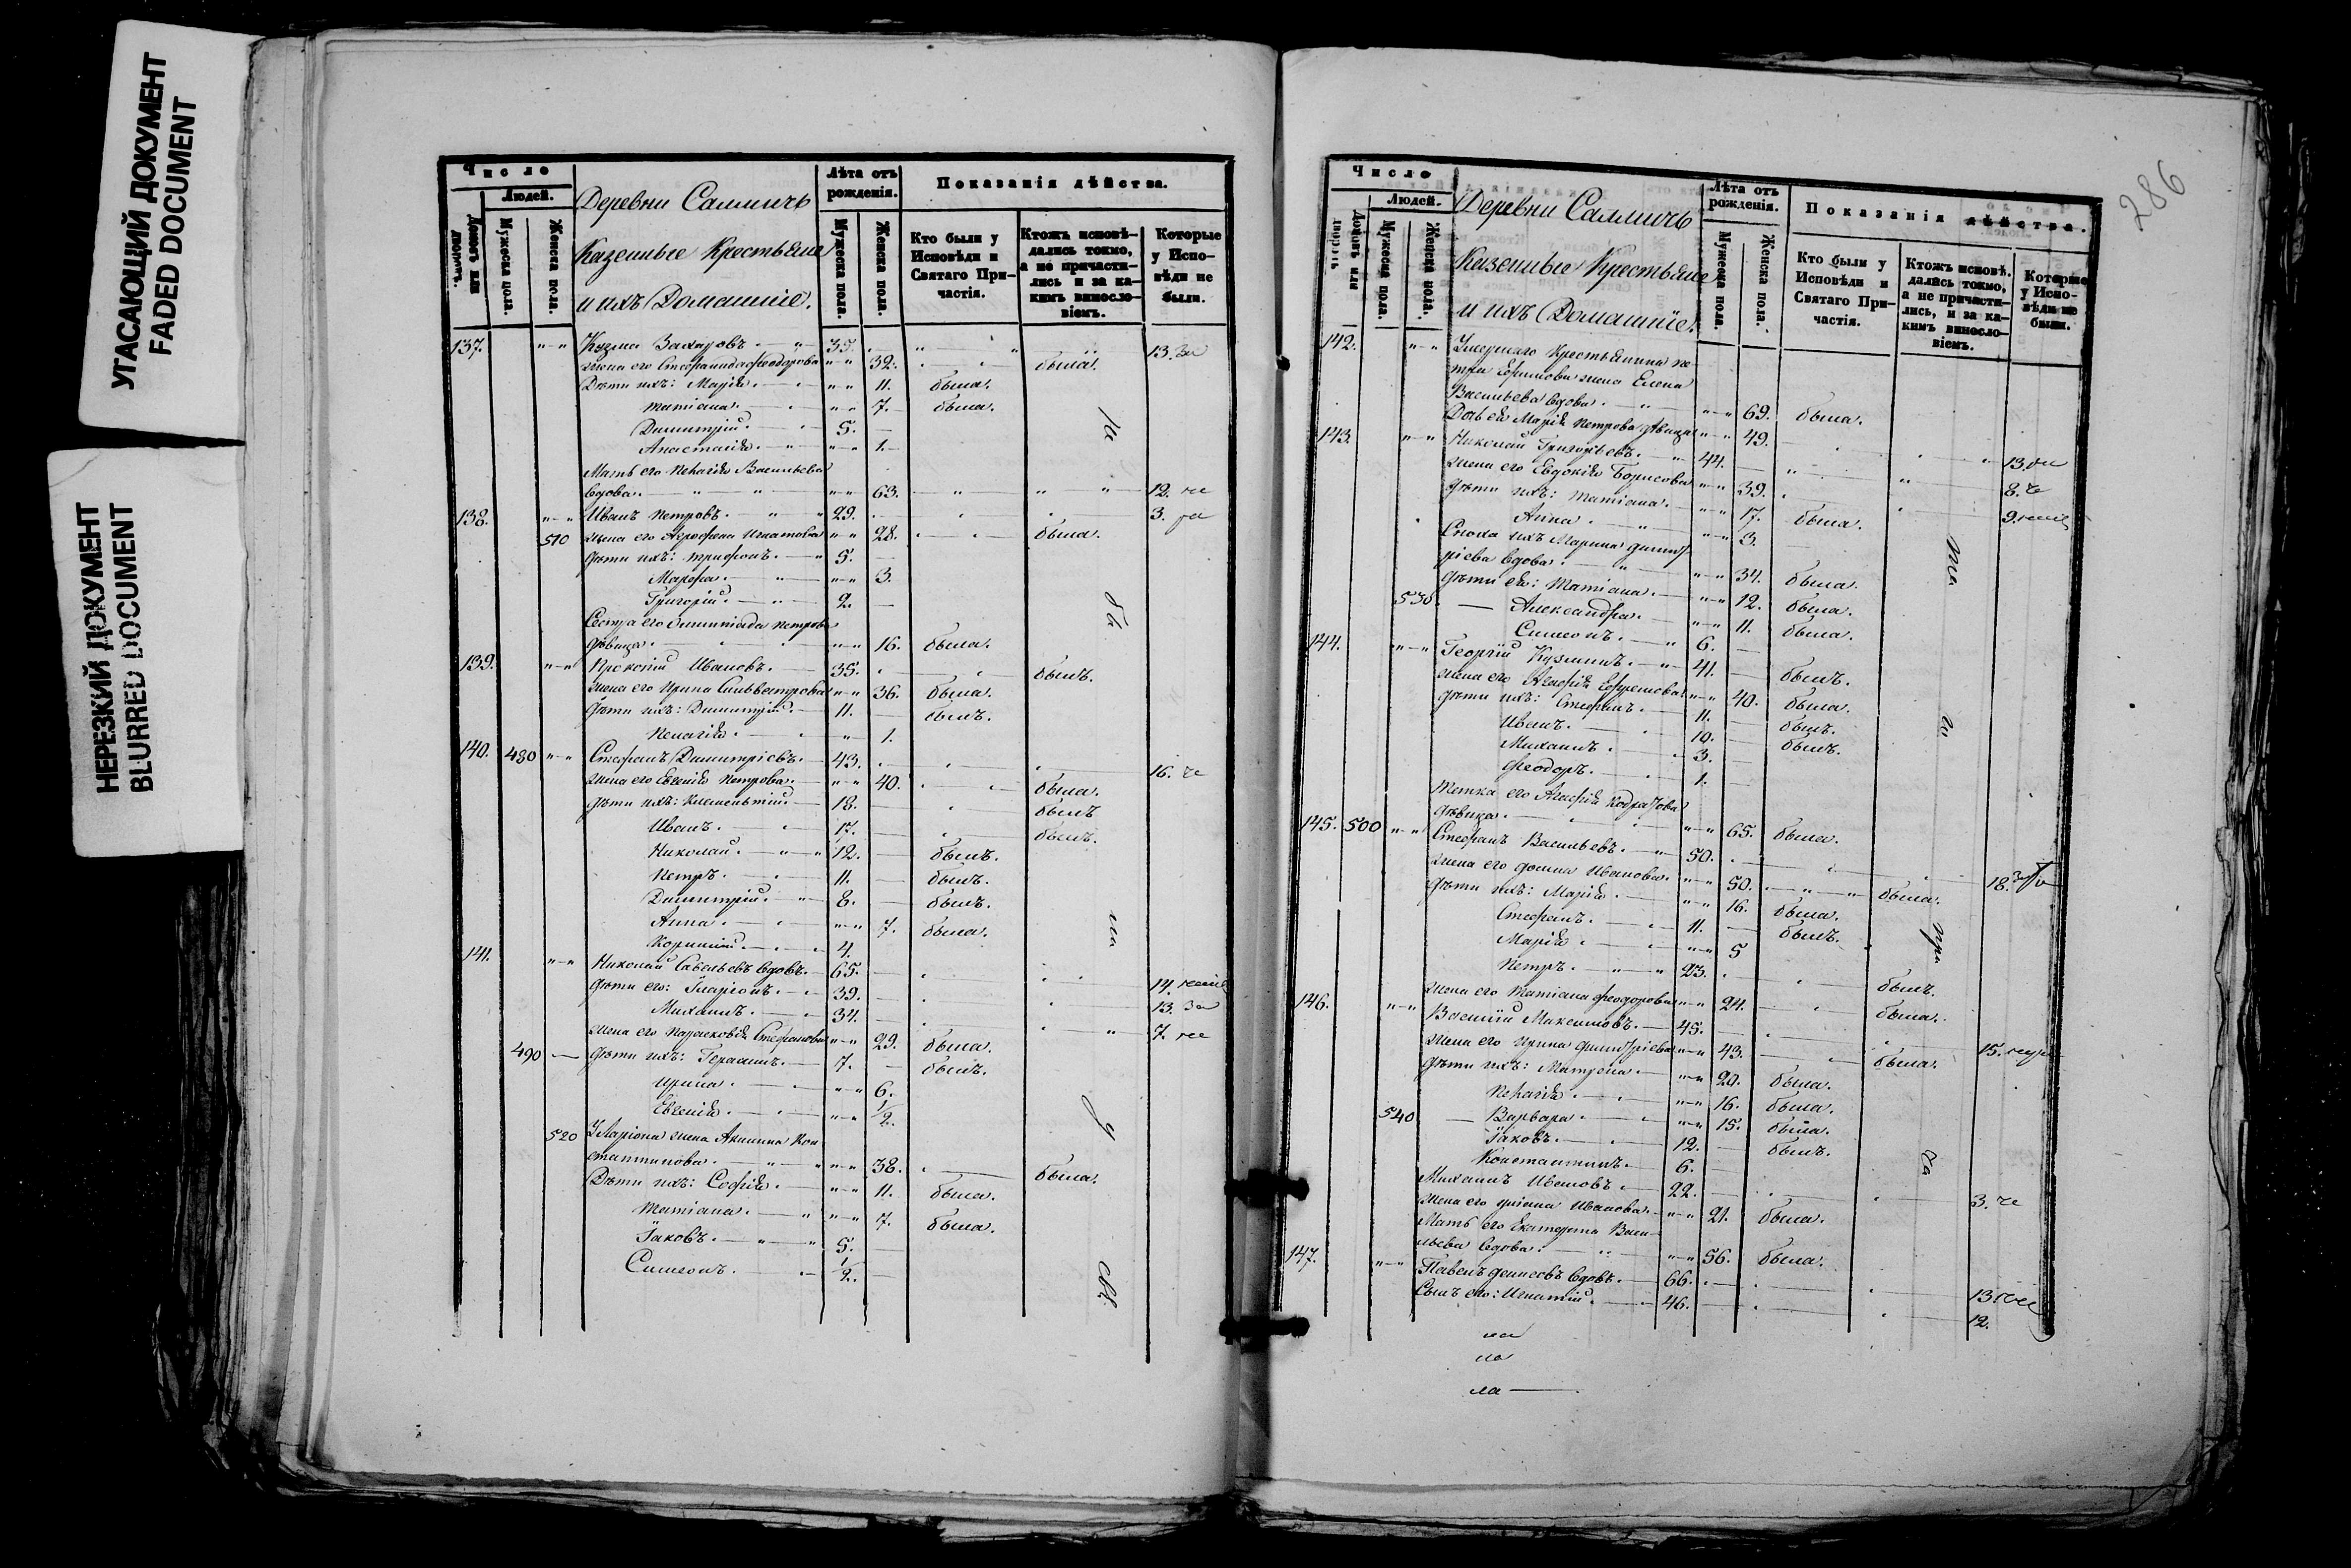 УГАСАЮЩИЙ ДОКУМЕНТ
FADED DOCUMENT
НЕРЕЗКИЙ ДОКУМЕНТ
BLURRED DOCUMENT
Число
Людей.
Домовъ или дворовъ.
Мужеска пола.
Женска пола.
Деревни
Казенные Крестьяне
и ихъ Домашніе.
Лѣта отъ рожденія.
Мужеска пола.
Женска пола.
Показанія дѣйства.
Кто были у Исповѣди и Святаго Причастія.
Ктожъ исповѣдались токмо, а не причастились и за какимъ винословіемъ.
Которые у Исповѣди не были.
137. Кузма Захаровъ. 35. 13.
жена его Стефанида Феодорова 32. была.
Дѣти ихъ: Марія. 11. была.
Татіана. 7. была.
Димитрій. 5.
Анастасія. 1.
Мать его Пелагія Васильева
вдова. 63. 12.
138. Иванъ Петровъ. 29. 3.
510 жена его Агрофена Игнатова 28. была.
Дѣти ихъ: Трифонъ. 5.
Марфа. 3.
Григорій. 2.
Сестра его Олимпіада Петрова
дѣвица. 16. была.
139. Прокопій Ивановъ. 35. былъ.
жена его Ирина Сильвестрова 36. была.
Дѣти ихъ: Димитрій. 11. былъ.
Пелагія. 1.
140. 480 Стефанъ Димитріевъ. 43. 16.
жена его Евгенія Петрова. 40. была.
Дѣти ихъ: Климентій. 18. былъ
Иванъ. 17. былъ.
Николай. 12. былъ.
Петръ. 11. былъ.
Димитрій. 8. былъ.
Анна. 7. была.
4.
141. Николай Савельевъ вдовъ. 65. 14.
Дѣти его: Іларіонъ. 39. 13.
Михаилъ. 34. 7.
жена его Парасковія Стефанова 29. была.
490 Дѣти ихъ: Герасимъ. 7. былъ.
Ирина. 6.
Евгенія. 1/2.
520 Іларіона жена Акилина Кон
стантинова. 38. была.
Дѣти ихъ: Софія. 11. была.
Татіана. 7. была.
Іаковъ. 5.
Симеонъ. 1/2.
286
Число
Людей.
Домовъ или дворовъ
Мужеска пола.
Женска пола.
Деревни
Казенные Крестьяне
и ихъ Домашніе.
Лѣта отъ рожденія.
Мужеска пола.
Женска пола.
Показанія дѣйства.
Кто были у Исповѣди и Святаго Причастія.
Ктожъ исповѣдались токмо, а не причастились, и за какимъ винословіемъ.
Которые у Исповѣди не были.
142. Умершаго Крестьянина Пе
тра жена Елена
Васильева вдова. 69. была.
Дочь ея Марія Петрова дѣвица 49.
143. Николай Григорьевъ. 44. 13.
жена его Евдокія Борисова 39. 8.
Дѣти ихъ: Татіана. 17. была. 9.
Анна. 3.
Сноха ихъ Марина Димит
ріева вдова. 34. была.
Дѣти ея: Татіана. 12. была.
530. Александра. 11. была.
Симеонъ. 6.
144. Георгій Кузминъ. 41. былъ.
жена его Агафія Ефремова 40. была.
Дѣти ихъ: Стефанъ. 11. былъ.
Иванъ. 10. былъ.
Михаилъ. 3.
Феодоръ. 1.
Тетка его Агафія
дѣвица. 65. была.
145. 500 Стефанъ Васильевъ. 50. 18.
жена его Домна Иванова. 50. была.
Дѣти ихъ: Марія. 16. была.
Стефанъ. 11. былъ.
Марія. 5
Петръ. 23. былъ.
жена его Татіана Феодорова 24. была.
146. Василій Максимовъ. 45. 15.
жена его Ирина Димитріева 43. была.
Дѣти ихъ: Матрена. 20. была.
Пелагія. 16. была.
540 Варвара. 15. была.
Іаковъ. 12. былъ.
Константинъ. 6.
Михаилъ Ивановъ. 22. 3.
жена его Иванова. 21. была.
Мать его Екатерина Васи
льева вдова. 56. была.
147. Павелъ вдовъ. 66. 13
Сынъ его: Игнатій. 46. 12.